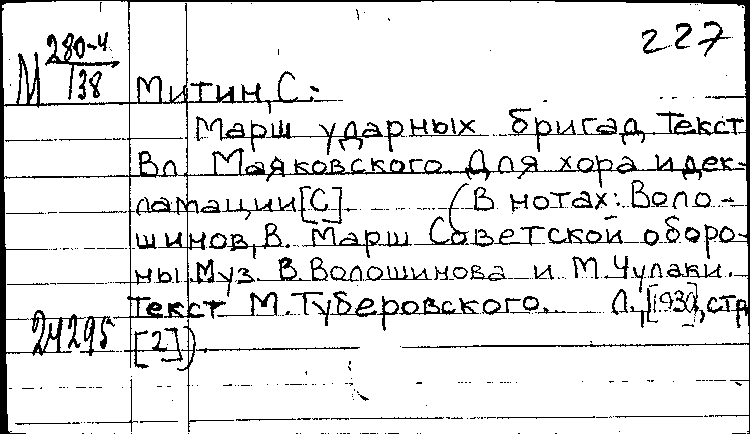 227
М 280-4/138
Митин, С.:
Марш ударных бригад. Текст
Вл. Маяковского. Для хора и дек-
ламации [С]. (В нотах: Воло-
шинов, В. Марш Советской оборо-
ны. Муз. В. Волошинова и М. Чулаки.
Текст М. Туберовского. Л., [1930], стр.
[2]).
24295